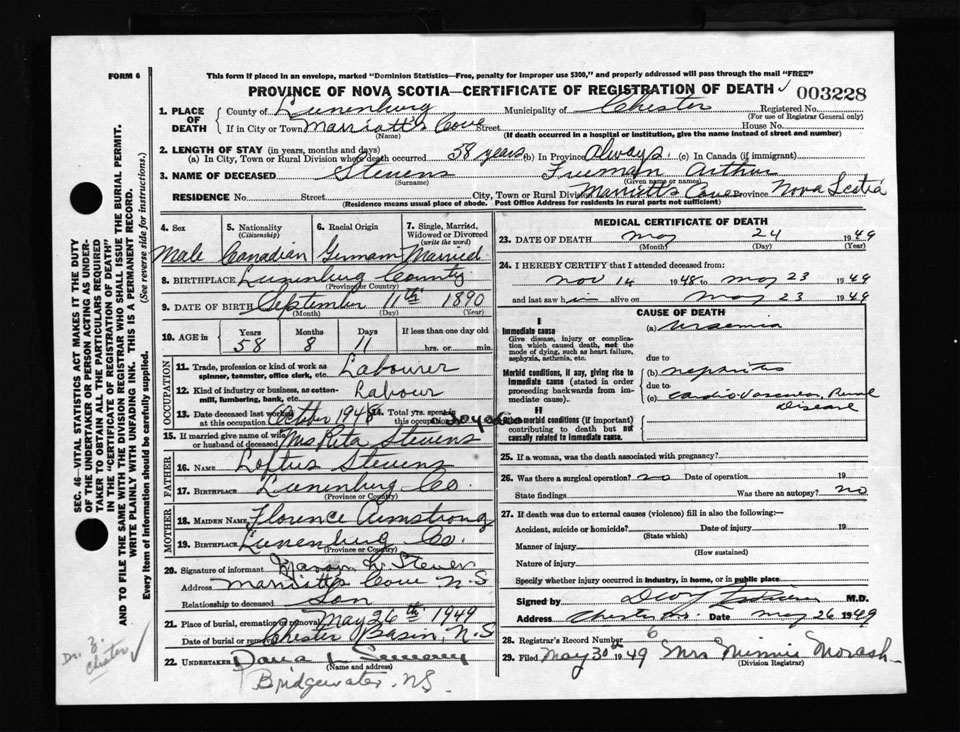 FORM 6
This form if placed in an envelope, marked "Dominion Statistics—Free, penalty for improper use $300," and properly addressed will pass through the mail "FREE"
PROVINCE OF NOVA SCOTIA—CERTIFICATE OF REGISTRATION OF DEATH 003228
1. PLACE OF DEATH
County of Lunenburg Municipality of Chester Registered No.
(For use of Registrar General only)
If in City or Town Marriott's Cove Street House No.
(Name) (If death occurred in a hospital or institution, give the name instead of street and number)
2. LENGTH OF STAY (in years, months and days)
(a) In City, Town or Rural Division where death occurred 58 years (b) In Province Always. (c) In Canada (if immigrant)
3. NAME OF DECEASED Stevens Freeman Arthur
(Surname) (Given name or names)
RESIDENCE No. Street City, Town or Rural Division Marriott's Cove Province Nova Scotia
(Residence means usual place of abode. Post Office Address for residents in rural parts not sufficient)
4. Sex
Male
5. Nationality
(Citizenship)
Canadian
6. Racial Origin
German
7. Single, Married, Widowed or Divorced
(write the word)
Married
8. BIRTHPLACE Lunenburg County
(Province or Country)
9. DATE OF BIRTH September 11th 1890
(Month) (Day) (Year)
10. AGE in Years Months Days If less than one day old
58 8 11 hrs. or min.
OCCUPATION
11. Trade, profession or kind of work as spinner, teamster, office clerk, etc. Labourer
12. Kind of industry or business, as cotton-mill, lumbering, bank, etc. Labour
13. Date deceased last worked at this occupation October 1948 14. Total yrs. spent in this occupation
15. If married give name of wife or husband of deceased Mrs Rita Stevens
FATHER
16. NAME Loftus Stevens
17. BIRTHPLACE Lunenburg Co.
(Province or Country)
MOTHER
18. MAIDEN NAME Florence Armstrong
19. BIRTHPLACE Lunenburg Co.
(Province or Country)
20. Signature of informant Stevens
Address Marriott's Cove N.S
Relationship to deceased Son
21. Place of burial, cremation or removal May 26th 1949
Date of burial or removal Chester Basin, N.S
22. UNDERTAKER
(Name and address)
Bridgewater. NS.
MEDICAL CERTIFICATE OF DEATH
23. DATE OF DEATH May 24 1949
(Month) (Day) (Year)
24. I HEREBY CERTIFY that I attended deceased from:
Nov 14 1948 to May 23 1949
and last saw him alive on May 23 1949
CAUSE OF DEATH
I
Immediate cause
Give disease, injury or complication which caused death, not the mode of dying, such as heart failure, asphyxia, asthenia, etc.
(a) Uraemia
due to
Morbid conditions, if any, giving rise to immediate cause (stated in order proceeding backwards from immediate cause).
(b) nephritis
due to
(c) Cardio Vascular Renal
Disease
II
Other morbid conditions (if important) contributing to death but not causally related to immediate cause.
25. If a woman, was the death associated with pregnancy?
26. Was there a surgical operation? no Date of operation 19
State findings Was there an autopsy? no
27. If death was due to external causes (violence) fill in also the following:—
Accident, suicide or homicide? Date of injury 19
(State which)
Manner of injury
(How sustained)
Nature of injury
Specify whether injury occurred in industry, in home, or in public place
Signed by M.D.
Address Chester N.S. Date May 26 1949
28. Registrar's Record Number 6
29. Filed May 30th 1949 Mrs Minnie Morash
(Division Registrar)
SEC. 46—VITAL STATISTICS ACT MAKES IT THE DUTY
OF THE UNDERTAKER OR PERSON ACTING AS UNDERTAKER TO OBTAIN ALL THE PARTICULARS REQUIRED
IN THE "CERTIFICATE OF REGISTRATION OF DEATH"
AND TO FILE THE SAME WITH THE DIVISION REGISTRAR WHO SHALL ISSUE THE BURIAL PERMIT.
WRITE PLAINLY WITH UNFADING INK. THIS IS A PERMANENT RECORD.
Every item of information should be carefully supplied. (See reverse side for instructions.)
Dr. Z.
Chester